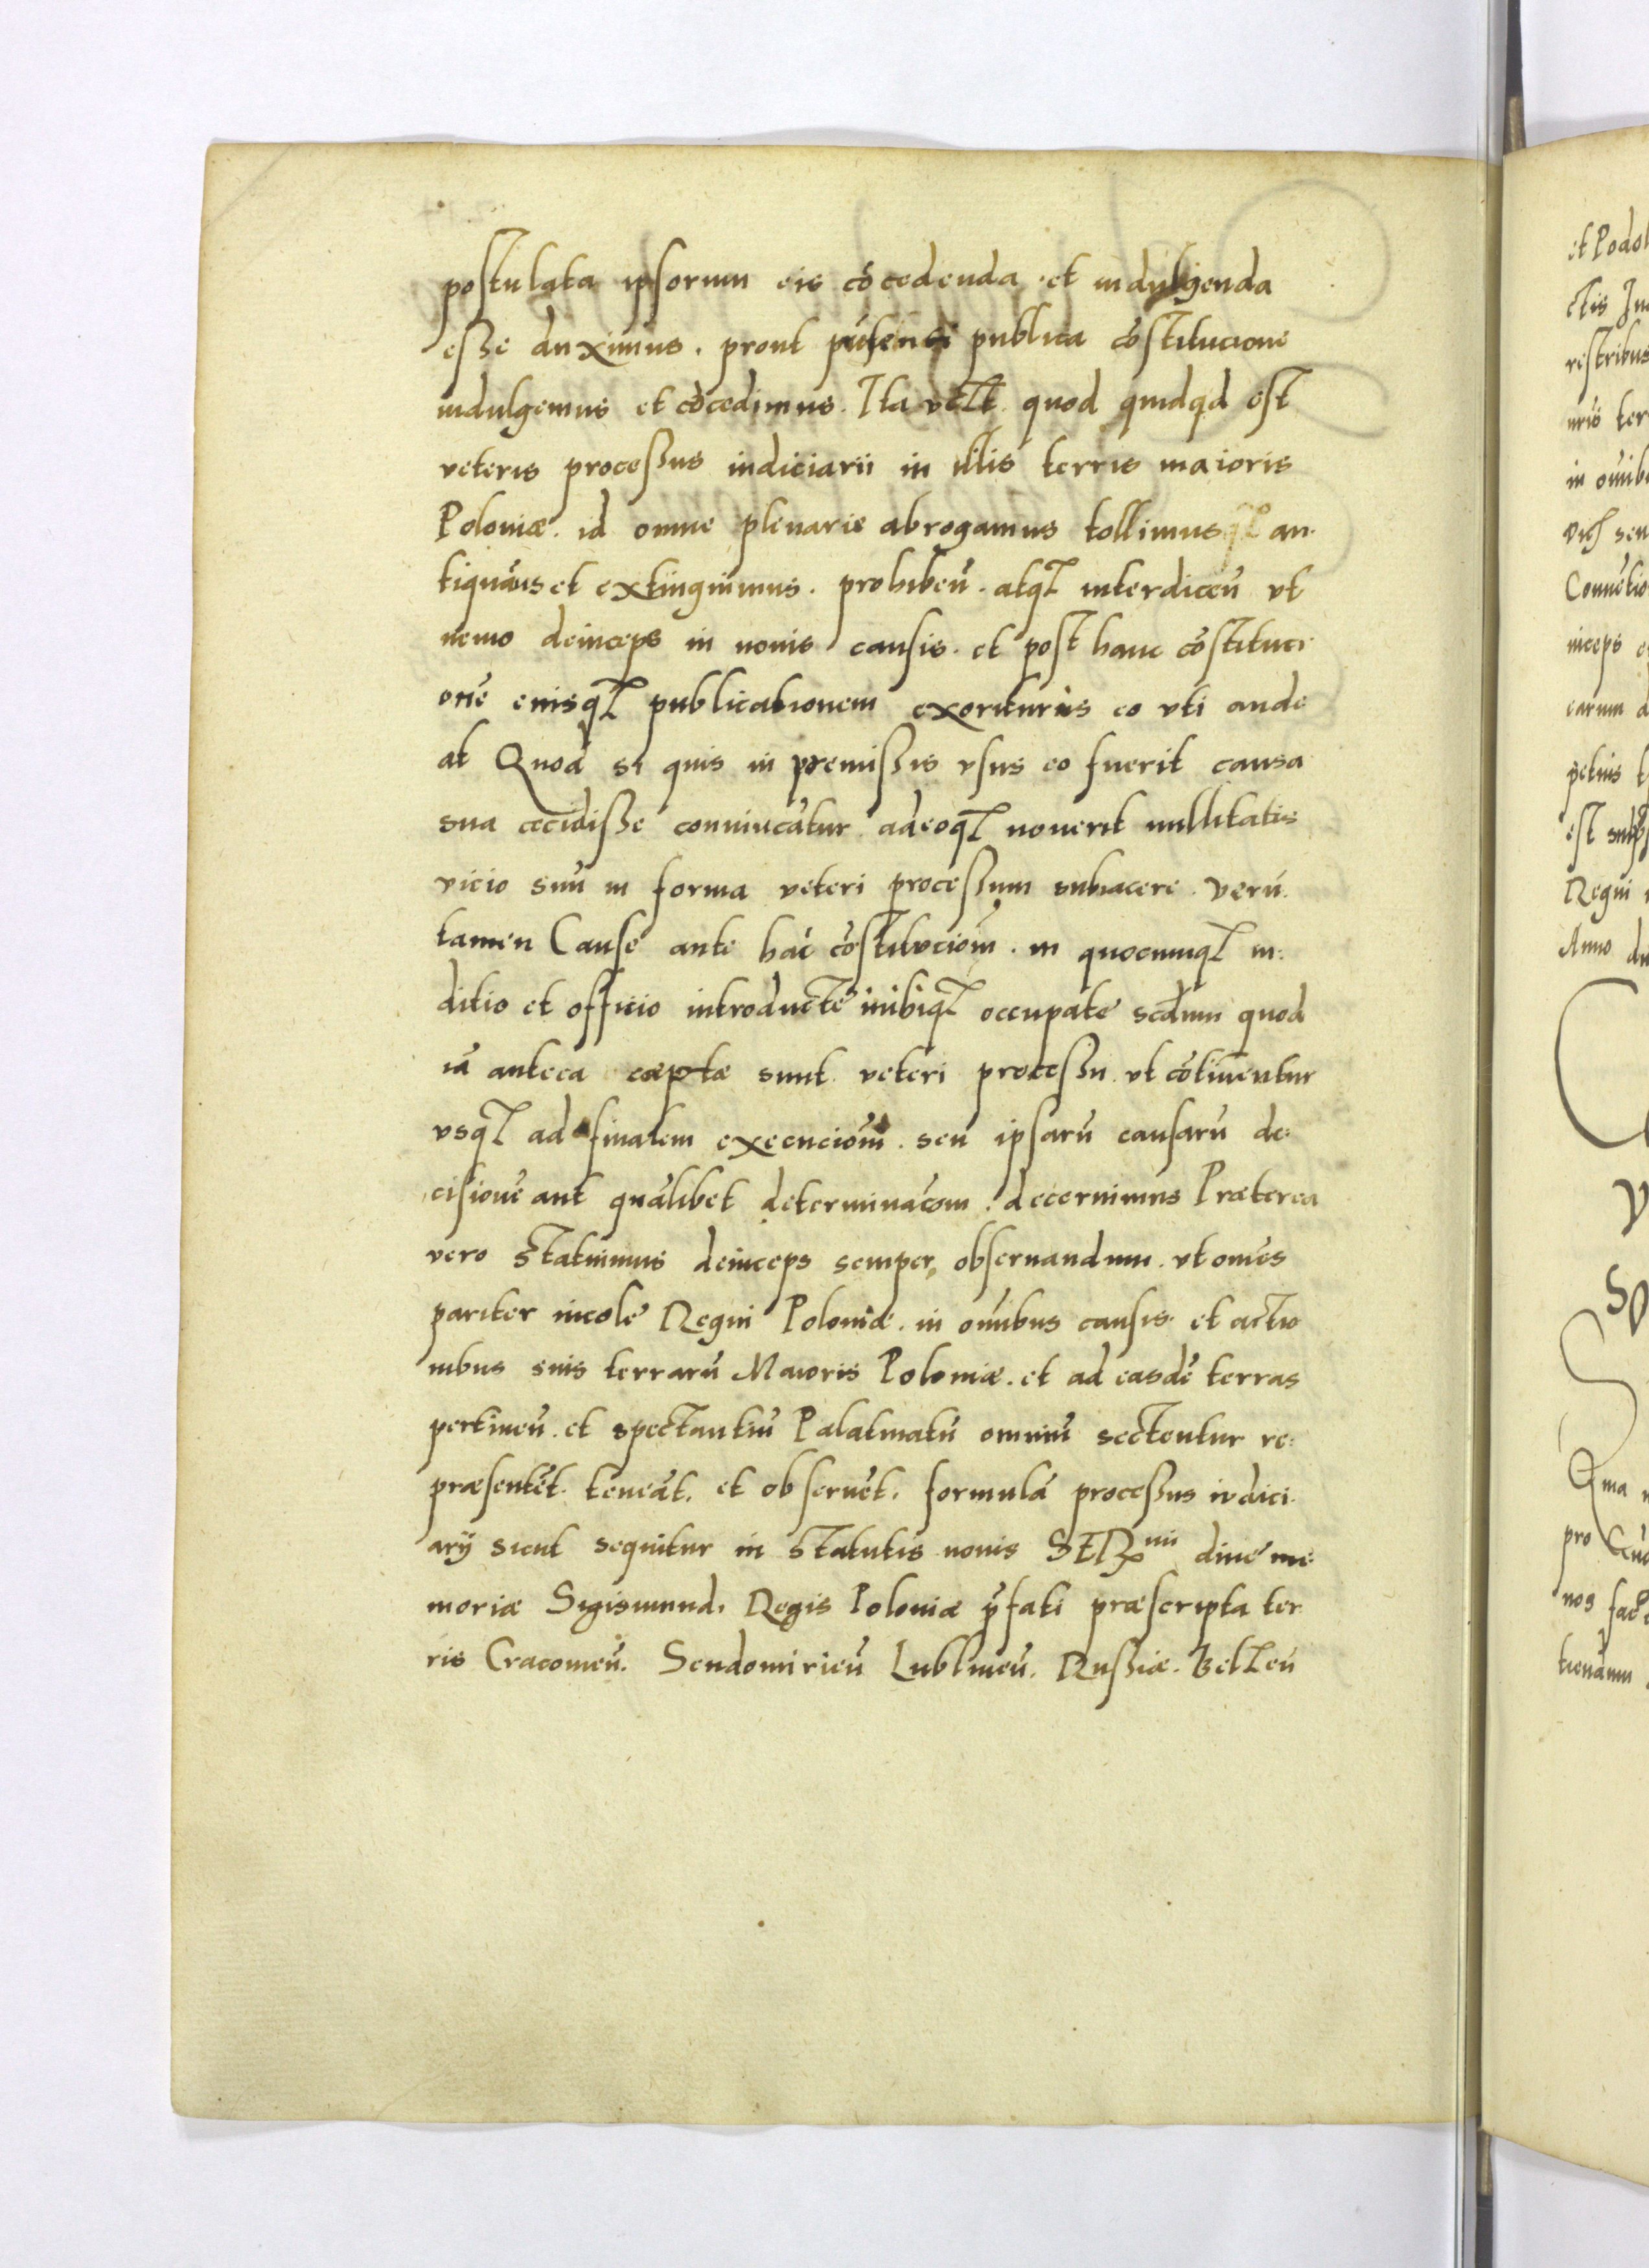 postulata ipsorum eis cōcedenda et indulgenda
esse duximus. prout p̄senti publica cōstitucione
indulgemus et cōcedimus. Ita velt quod quidqd est
veteris processus iudiciarii in illis terris maioris
Poloniæ. id omne plenarie abrogamus tollimusqʒ an-
tiquāus et extinguimus. prohibeñ. atqʒ interdiceñ vt
nemo deinceps in nouis causis. et post hanc cōstituci
onē eiusqʒ publicationem exorituris eo vti aude
at Quod si quis in premissis vsus eo fuerit causa
sua cecidisse conuincātur adeoqʒ nouerit nullitatis
vicio suū in forma veteri processum subiacere. Verū
tamen Cause ante hāc cōstitucioñm. in quocunqʒ iu-
ditio et officio introducte inibiqʒ occupate scdum quod
iā antea cæptæ sunt veteri processu vt cōtinentur
vsqʒ ad finalem execucioñm. seu ipsarū causarū de-
cisionē aut quālibet determinacōm. decernimus Præterea
vero statuimus deinceps semper obseruandum. vt omēs
pariter incole Regni Poloniæ. in omībus causis et actio
nibus suis terrarū Maioris Poloniæ. et ad easdē terras
pertineñ. et spectantiū Palatinatū omniū sectentur re-
præsentēt. teneāt. et obseruēt. formulā processus iudici
arÿ sicut sequitur in statutis nouis SERmi diue me
moriæ Sigismundi Regis Poloniæ p̄fati præscripta ter
ris Cracouieñ. Sendomirieñ Lublineñ. Russiæ. Belzeñ
et Podol
ctis Iu
restribus
uris ter
in omīb
sen
niceps
earum
est
Regni
Anno
pro
nos